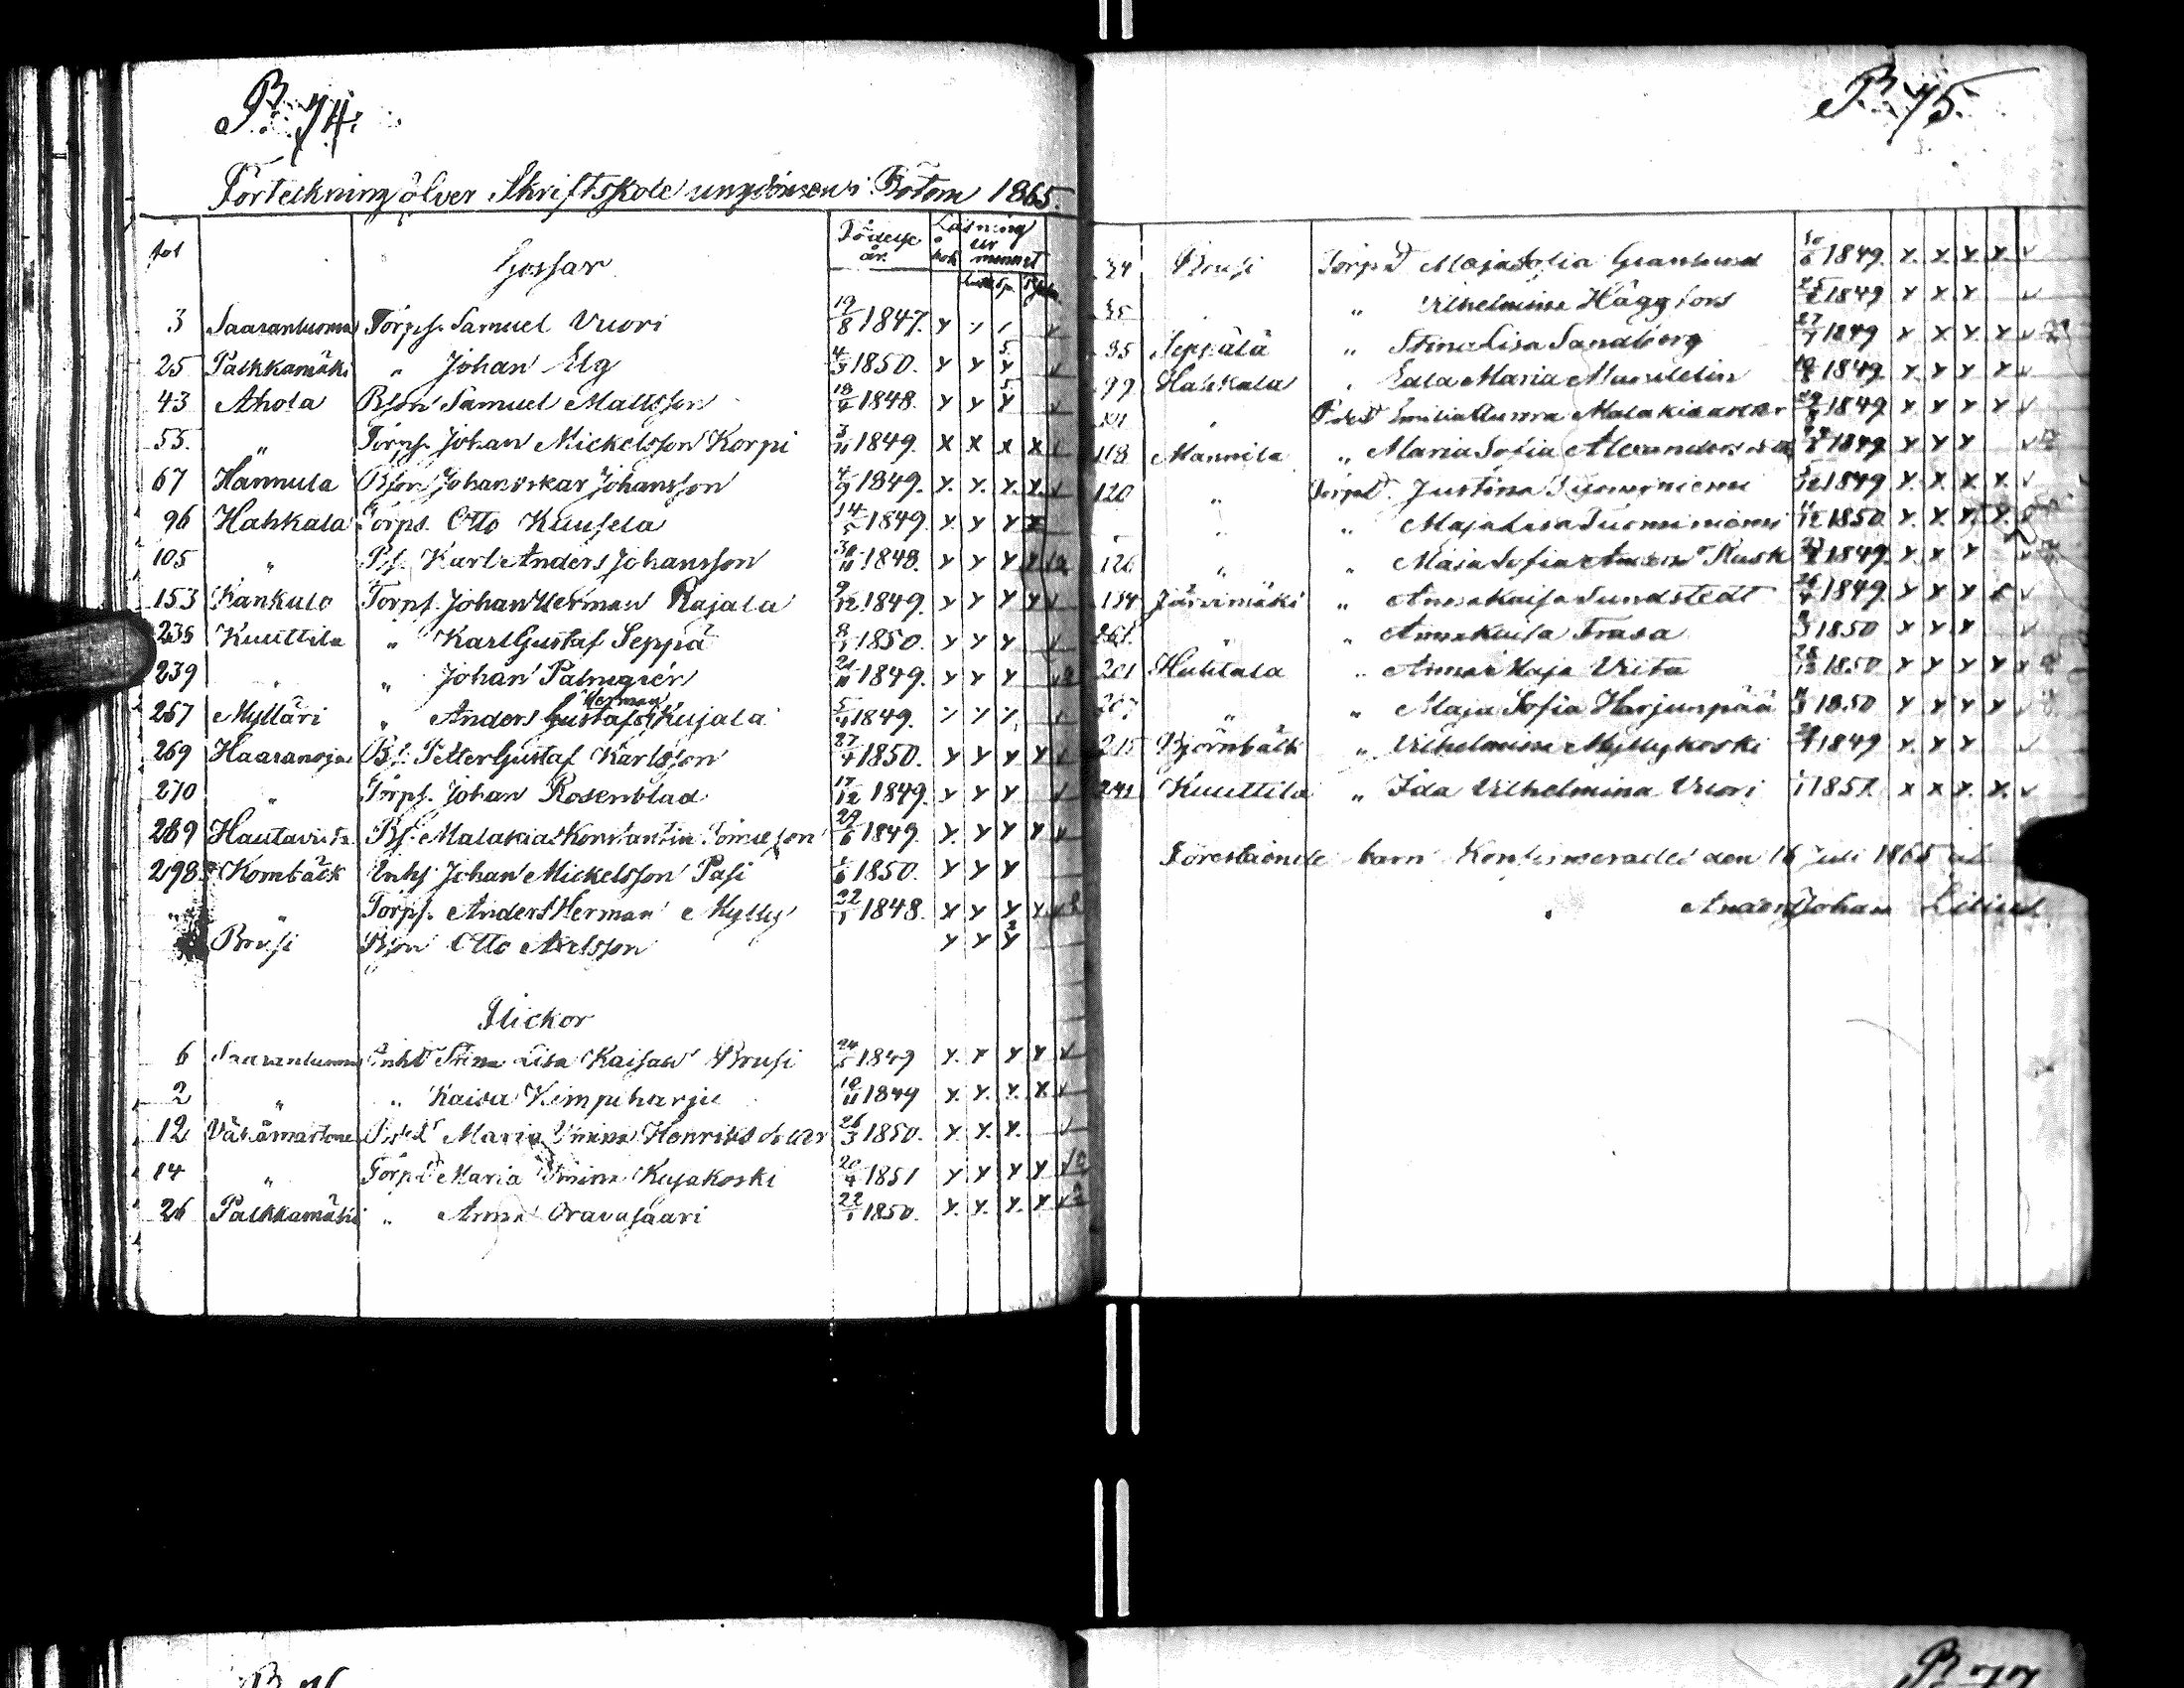 P. 74.
Förteckning öfver Skriftskole ungdomen i Bötom 1865.
fol Födelse år. Läsning i bok ur minnet
Gossar
3 Saaranluoma Torps. Samuel Vuori 19/8 1847. x
25 Palkkamäki „ Johan Elg 4/3 1850. x x x 5
43 Ahola Bson Samuel Mattsson 1848. x x x 5
55. „ Torps. Johan Mickelsson Korpi 1849. x x x x
67 Hannula Bson Johan Oskar Johansson 1849. x. x. x. x.
96 Hahkala Torps. Otto Kuusela 14/5 1849. x x x x
105 „ Bs. Karl Anders Johansson 30/11 1848. x x x x
153 Kankulo Torps. Johan Herman Rajala 9/12 1849. x x x x
235 Kuuttila „ Karl Gustaf Seppä 1850. x x x
239 „ „ Johan Palmgrén 21/11 1849. x x x
Herman
257 Mylläri „ Anders Gustafss Kujala 1849.
269 Haaranoja Bs. Petter Gustaf Karlsson 27/4 1850. x x x x
270 „ Torps. Johan Rosenblad 17/12 1849. x x x
289 Hautaviita Bs. Malakias Konstantin 29/6 1849. x. x x x
298 Kornbäck Inhs Johan Mickelsson Pasi 1850. x x x
„ „ Torps. Anders Herman Mylly 22/1 1848. x x x x
Brusi Bson Otto Axelsson x x x 2
Flickor
6 Saaranluoma Inhd Stina Lisa Kaisasd Brusi 24/5 1849 x. x x x
2 „ „ Kaisa Kimpiharju 19/11 1849 x. x. x. x
12 Vähämartone Maria Henriksdotter 26/3 1850. x. x. x.
14 „ Torpd Maria Kujakoski 20/4 1851 x x x x
26 Palkkamäki „ Anna Oravasaari 22/1 1850. x. x. x. x
P. 75.
34 Brusi Torpd Maja Sofia Granlund 10/6 1849. x. x. x. x.
35 „ Vilhelmina Häggfors 1849 x x x
35 Seppälä „ Stina Lisa Sandberg 1849 x x x. x
99 Hahkala „ Maria Mandelin 1849 x x x x
„ Emilia Malakiasdotter 1849 x x x x
118 Mannila „ Maria Sofia Alexandersdotter 1849 x x x
120 „ Torpd. Justina Tuominiemi 1849 x. x. x. x
„ „ Maja Lisa Tuominiemi 1850. x. x. x. x.
126 „ „ Maja Sofia Rask 1849. x. x x
134 Järvimäki „ Anna Kaisa Sundstedt 1849. x x x x
„ „ Anna Kaisa Trasa 1850 x x x
201 Huhtala „ Anna Kaja Viita 1850 x x x x
207 „ „ Maja Sofia Harjunpää 1850 x x x x
215 Björnbäck „ Vilhelmina Myllykoski 1849 x. x x
241 Kuuttila „ Ida Vilhelmina Vuori 1851. x x x. x.
Förestående barn Konfirmerades den 16 Juli 1865 af
Anders Johan
P. 76
P. 77